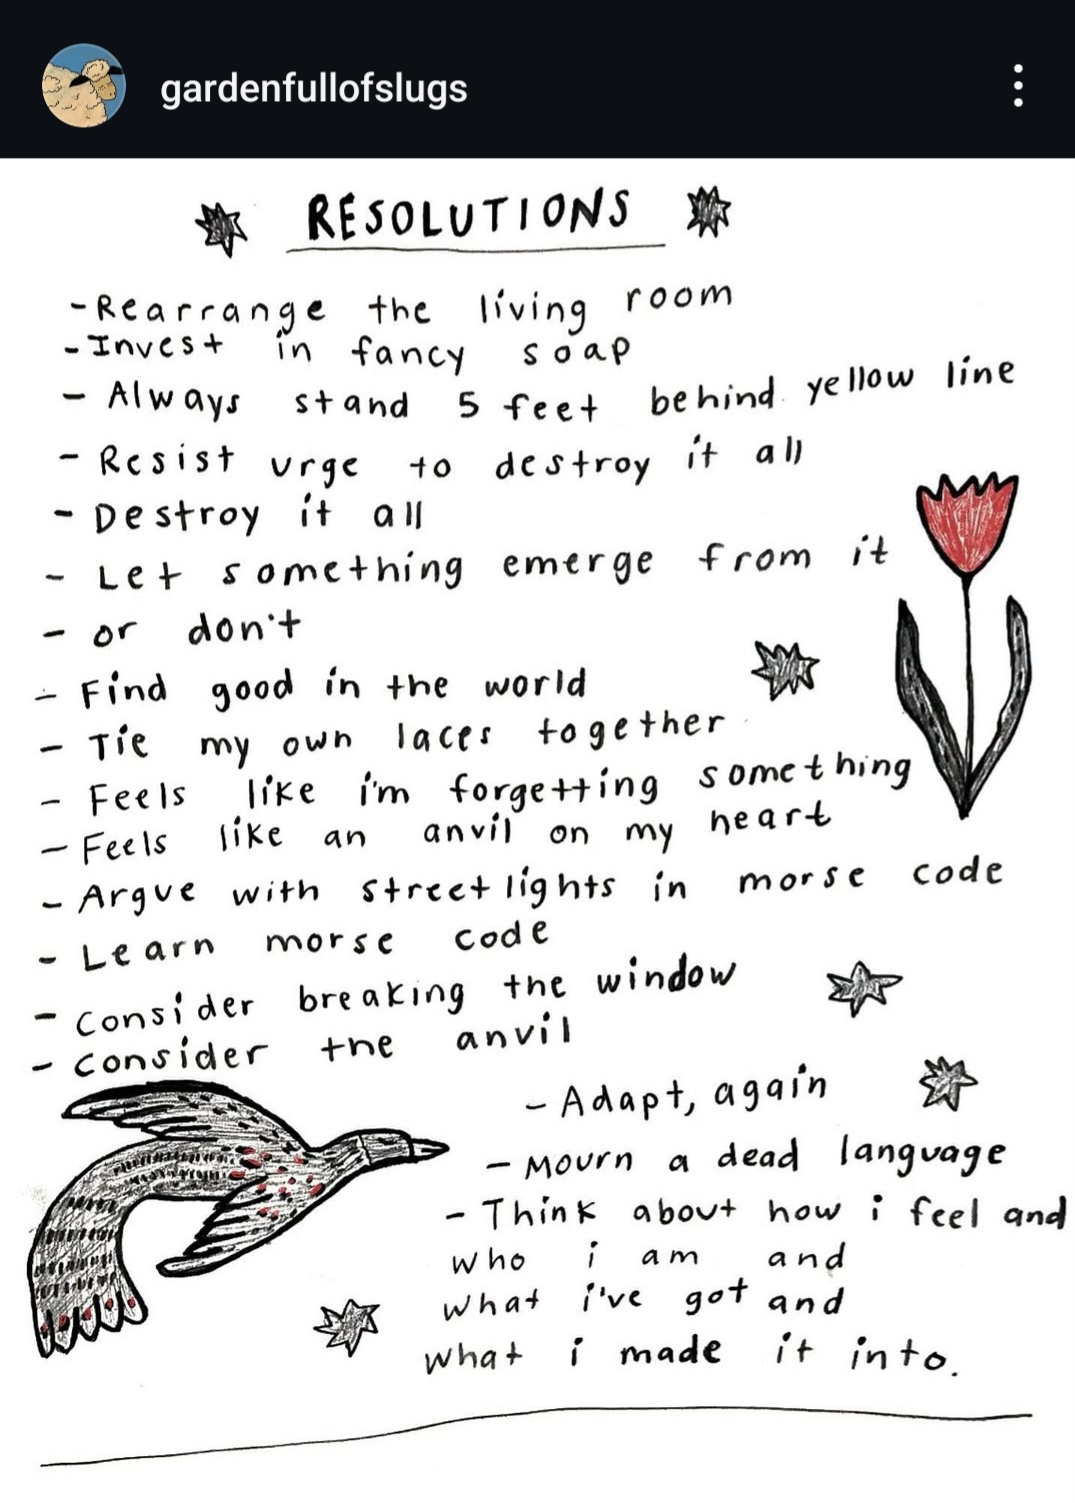 gardenfullofslugs
RESOLUTIONS
- Rearrange the living room
- Invest in fancy soap
- Always stand 5 feet behind yellow line
- Resist urge to destroy it all
- Destroy it all
- Let something emerge from it
- or don't
- Find good in the world
- Tie my own laces together
- Feels like i'm forgetting something
- Feels like an anvil on my heart
- Argue with streetlights in morse code
- Learn morse code
- Consider breaking the window
- Consider the anvil
- Adapt, again
- Mourn a dead language
- Think about how i feel and
who i am and
what i've got and
what i made it into.